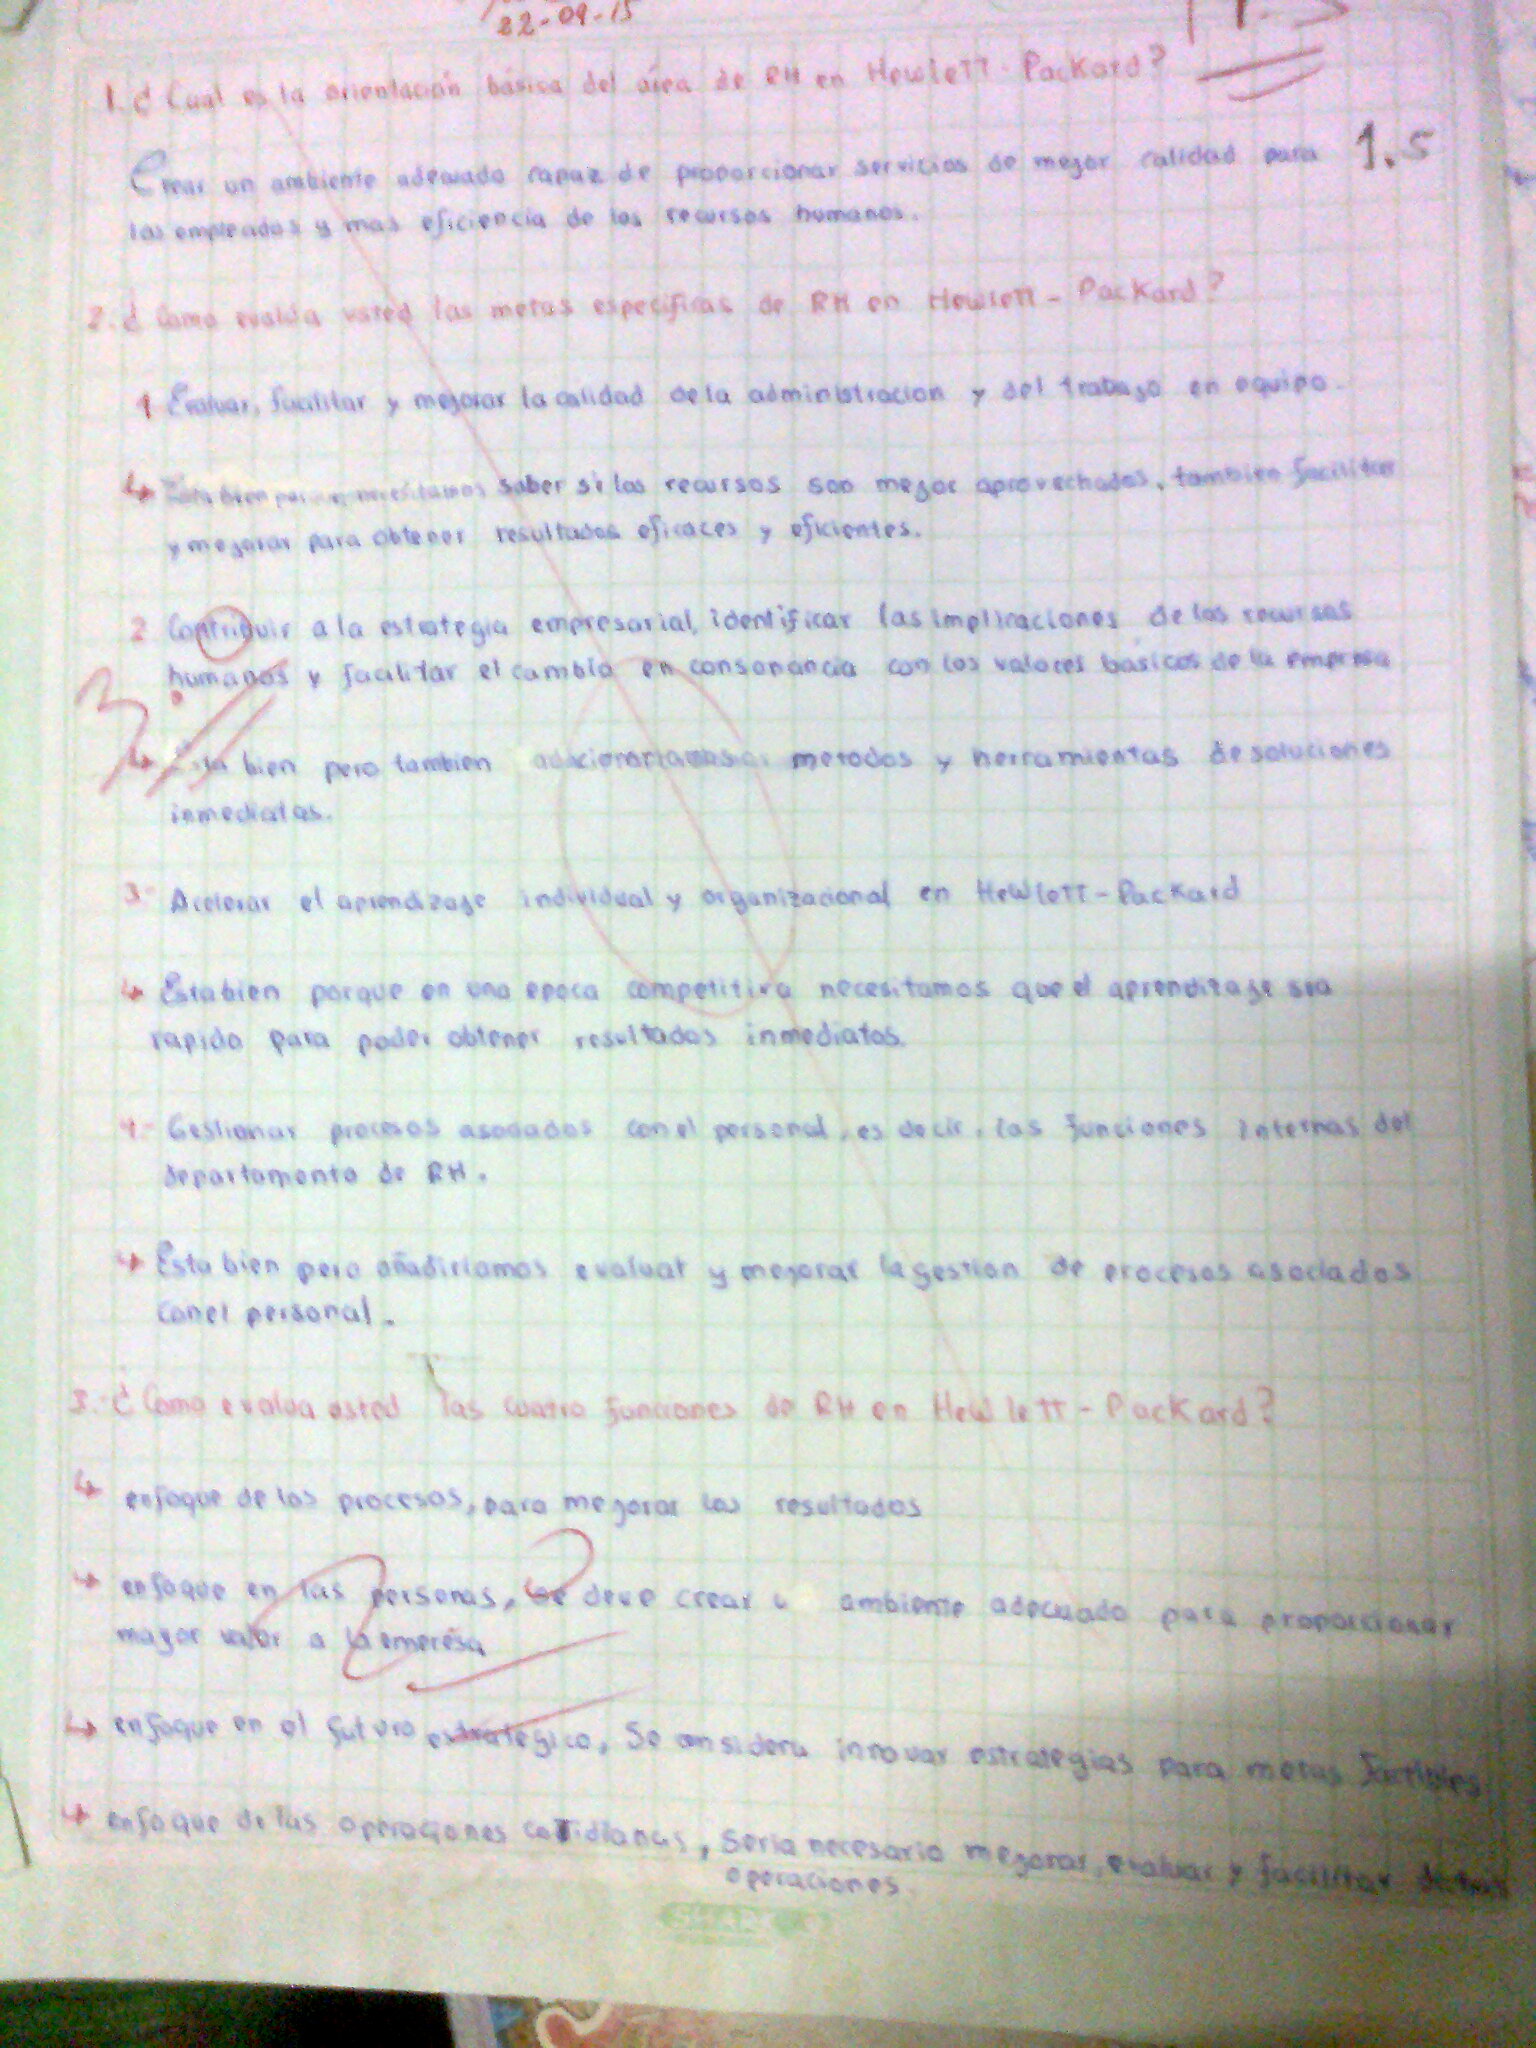 22-09-15
1. ¿Cual es la orientación básica del área de RH en Hewlett-Packard?
Crear un ambiente adecuado capaz de proporcionar servicios de mejor calidad para 1.5
los empleados y mas eficiencia de los recursos humanos.
2. ¿Como evalúa usted las metas especificas de RH en Hewlett-Packard?
1 Evaluar, facilitar y mejorar la calidad de la administracion y del trabajo en equipo.
↳ Esta bien porque necesitamos saber si los recursos son mejor aprovechados, tambien facilitar
y mejorar para obtener resultados eficaces y eficientes.
2 Contribuir a la estrategia empresarial, identificar las implicaciones de los recursos
humanos y facilitar el cambio en consonancia con los valores basicos de la empresa
3.
↳ Esta bien pero tambien metodos y herramientas de soluciones
inmediatas.
3- Acelerar el aprendizaje individual y organizacional en Hewlett-Packard
↳ Esta bien porque en una epoca competitiva necesitamos que el aprendizaje sea
rapido para poder obtener resultados inmediatos.
4- Gestionar procesos asociados con el personal, es decir, las funciones internas del
departamento de RH.
↳ Esta bien pero añadiriamos evaluar y mejorar la gestion de procesos asociados
con el personal.
3.- ¿Como evalua usted las cuatro funciones de RH en Hewlett-Packard?
↳ enfoque de los procesos, para mejorar los resultados
↳ enfoque en las personas, se deve crear u ambiente adecuado para proporcionar
mayor valor a la empresa
↳ enfoque en el futuro estrategico, Se considera innovar estrategias para metas factibles
↳ enfoque de las operaciones cotidianas, seria necesario mejorar, evaluar y facilitar
operaciones.